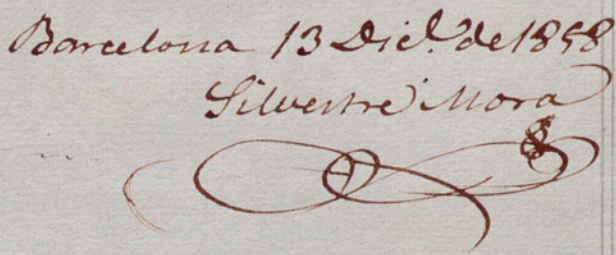 Barcelona 13 Dicl. de 1858
Silvestre Mora